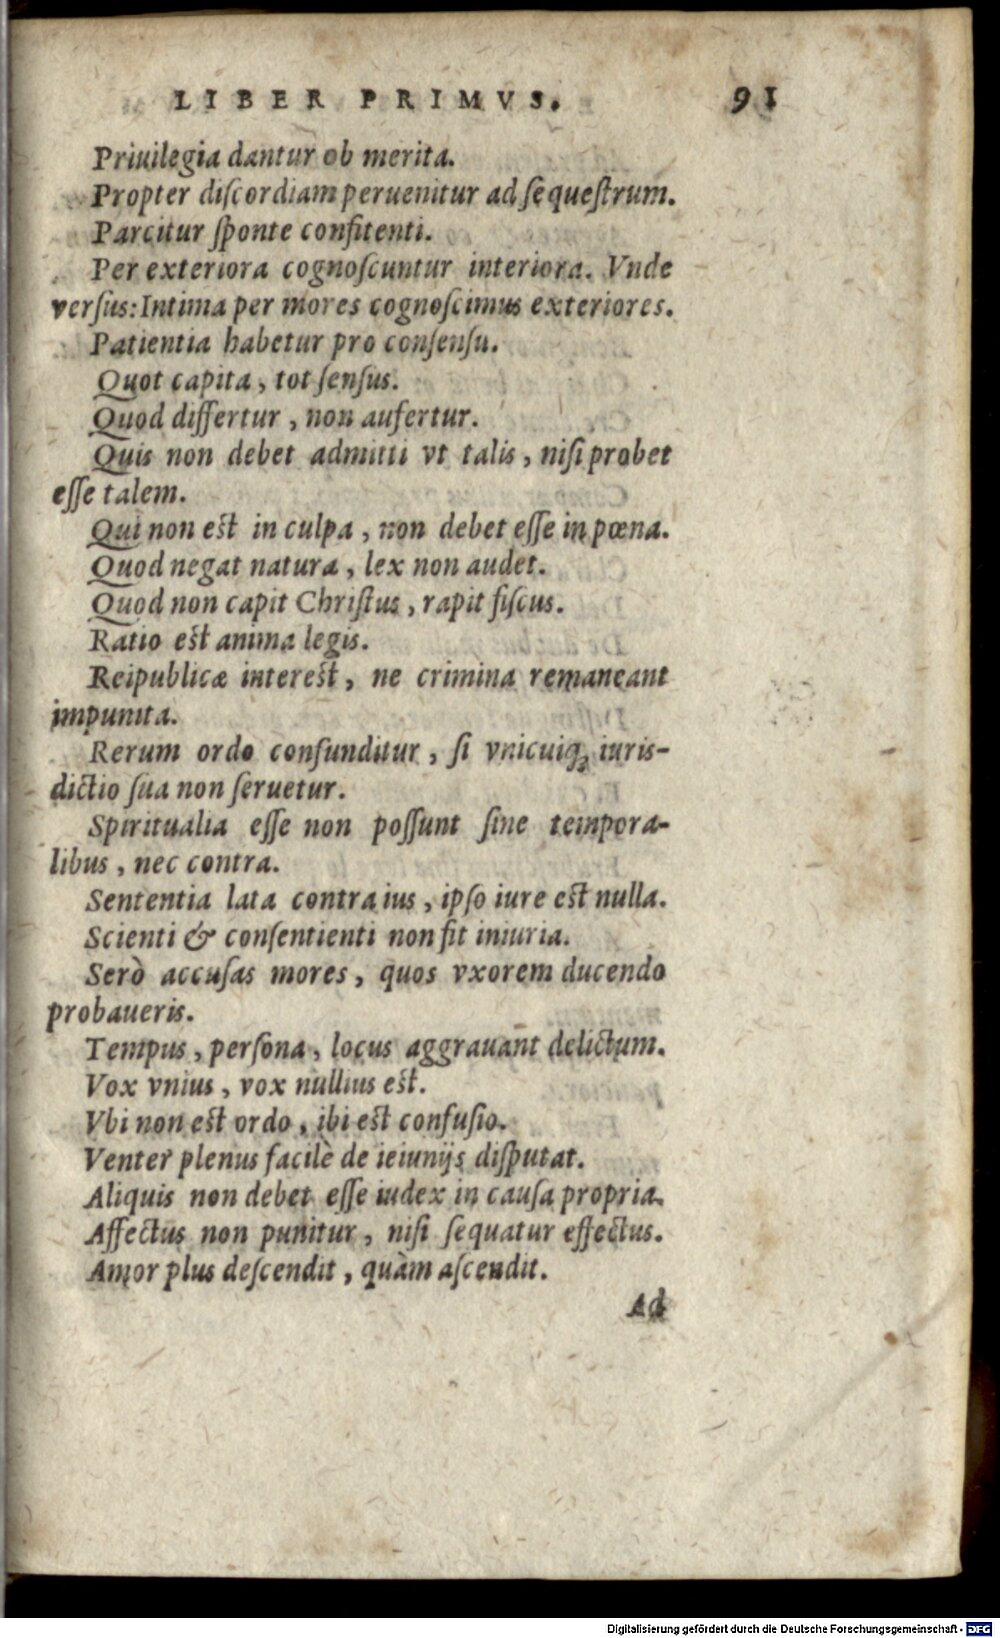 LIBER PRIMVS. 91
Priuilegia dantur ob merita.
Propter diſcordiam peruenitur ad ſequeſtrum.
Parcitur ſponte confitenti.
Per exteriora cognoſcuntur interiora. Vnde
verſus: Intima per mores cognoſcimus exteriores.
Patientia habetur pro conſenſu.
Quot capita, tot ſenſus.
Quod differtur, non aufertur.
Quis non debet admitti vt talis, niſi probet
eſſe talem.
Qui non eſt in culpa, non debet eſſe in pœna.
Quod negat natura, lex non audet.
Quod non capit Chriſtus, rapit fiſcus.
Ratio eſt anima legis.
Reipublicæ intereſt, ne crimina remaneant
impunita.
Rerum ordo confunditur, ſi vnicuiq; iuris-
dictio ſua non ſeruetur.
Spiritualia eſſe non poſſunt ſine tempora-
libus, nec contra.
Sententia lata contra ius, ipſo iure eſt nulla.
Scienti & conſentienti non fit iniuria.
Serò accuſas mores, quos vxorem ducendo
probaueris.
Tempus, perſona, locus aggrauant delictum.
Vox vnius, vox nullius eſt.
Vbi non eſt ordo, ibi eſt confuſio.
Venter plenus facilè de ieiunijs diſputat.
Aliquis non debet eſſe iudex in cauſa propria.
Affectus non punitur, niſi ſequatur effectus.
Amor plus deſcendit, quàm aſcendit.
Ad
Digitalisierung gefördert durch die Deutsche Forschungsgemeinschaft - DFG